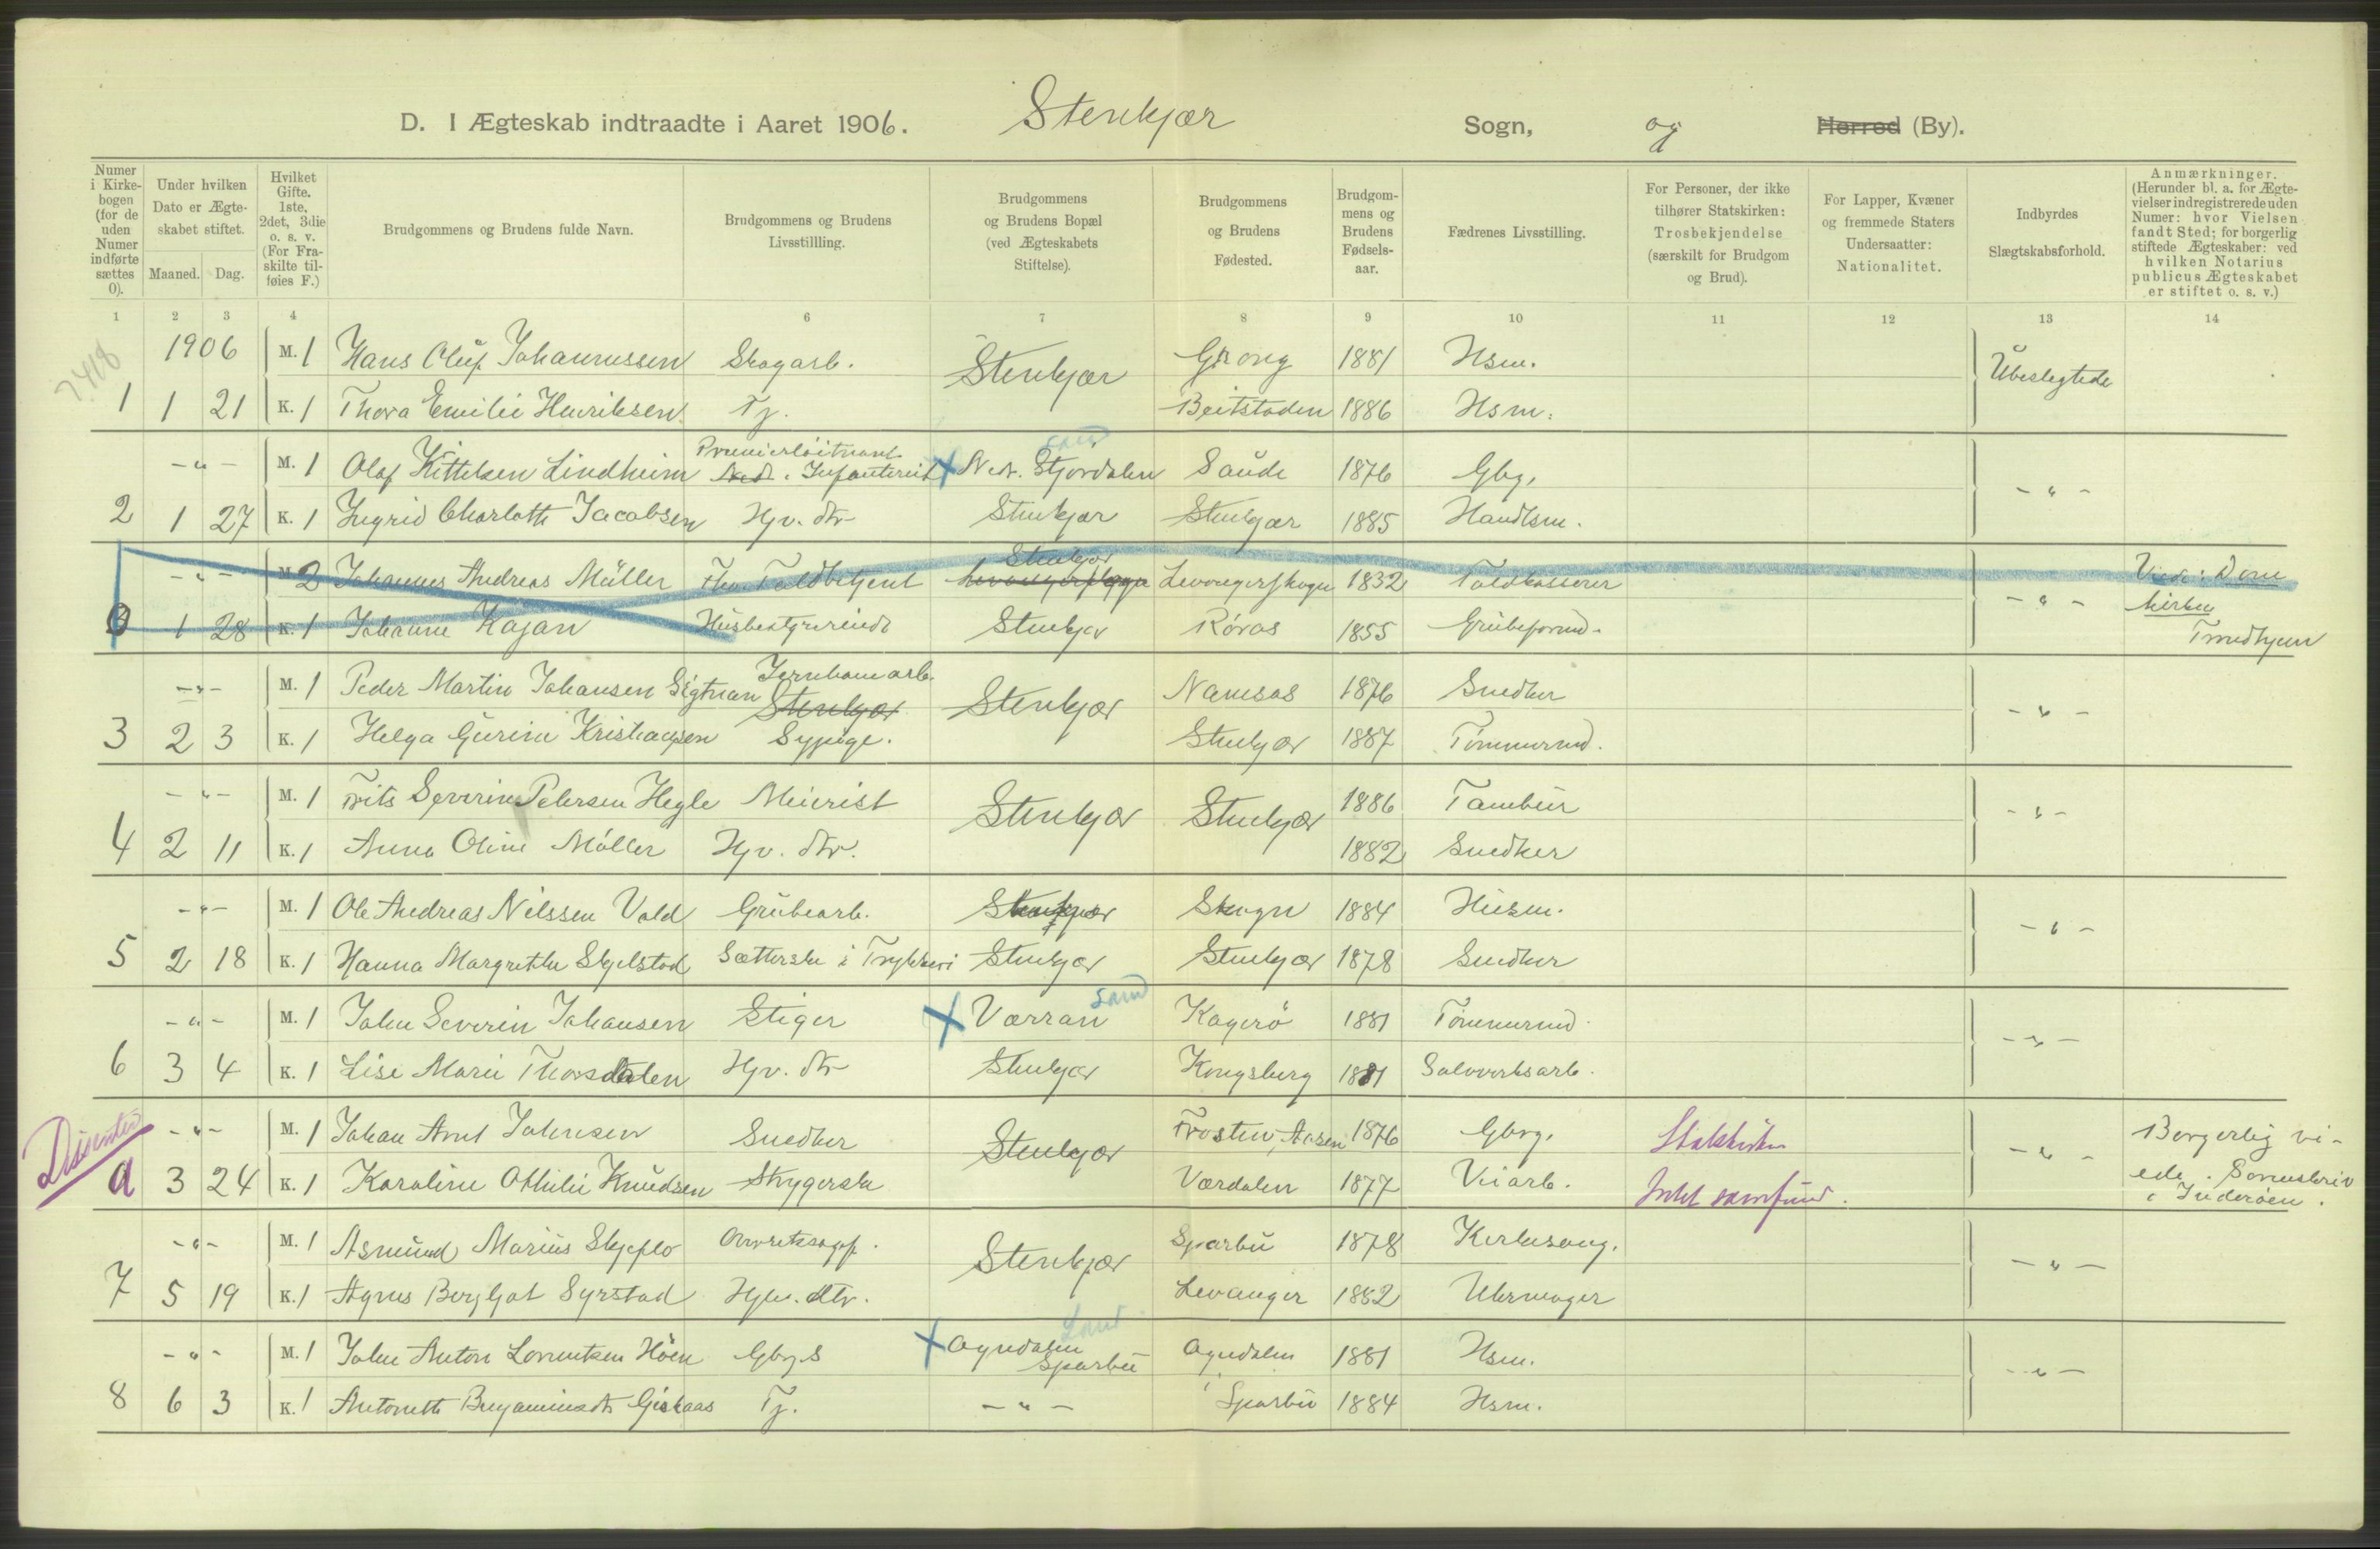 D. I Ægteskab indtraadte i Aaret 1906. Stenkjær Sogn, og Herred (By).
Numer i Kirkebogen (for de uden Numer indførte sættes 0).
Under hvilken Dato er Ægteskabet stiftet.
Maaned. Dag.
Hvilket Gifte. 1ste, 2det, 3die o. s. v. (For Fraskilte tilføies F.)
Brudgommens og Brudens fulde Navn.
Brudgommens og Brudens Livsstillling.
Brudgommens og Brudens Bopæl (ved Ægteskabets Stiftelse).
Brudgommens og Brudens Fødested.
Brudgommens og Brudens Fødselsaar.
Fædrenes Livsstilling.
For Personer, der ikke tilhører Statskirken: Trosbekjendelse (særskilt for Brudgom og Brud).
For Lapper, Kvæner og fremmede Staters Undersaatter: Nationalitet.
Indbyrdes Slægtskabsforhold.
Anmærkninger. (Herunder bl. a. for Ægtevielser indregistrerede uden Numer: hvor Vielsen fandt Sted; for borgerlig stiftede Ægteskaber: ved hvilken Notarius publicus Ægteskabet er stiftet o. s. v.)
1 2 3 4 6 7 8 9 10 11 12 13 14
1906 M. 1 Hans Oluf Johannessen Skogarb. Stenkjær Grong 1881 Hsm. Ubeslegtede
1 1 21 K. 1 Thora Emilie Henriksen Tj. Beitstaden 1886 Hsm.
-"- M. 1 Olaf Kittelsen Lindheim Premierløitnant Infanteriet X Ned. Stjørdalen Saude 1876 Gbr. -"-
2 1 27 K. 1 Ingrid Charlotte Jacobsen Hjv. dtr Stenkjær Stenkjær 1885 Handlsm.
-"- M. 2 Johannes Andreas Müller Toldbetjent Stenkjær Levangerskogn 1832 Toldkasserer -"- Viede: Dom
0 1 28 K. 1 Johanne Kajan Husbestyrerinde Stenkjær Røros 1855 Grubeformd. kirken
Trondhjem
-"- M. 1 Peder Martin Johansen Sigtnan Jernbanearb. Stenkjær Namsos 1876 Snedker -"-
Stenkjær
3 2 3 K. 1 Helga Gurine Kristiansen Sypige. Stenkjær 1887 Tømmermd.
-"- M. 1 Frits Severin Petersen Hegle Meierist Stenkjær Stenkjær 1886 Tambur -"-
4 2 11 K. 1 Anna Oline Møller Hjv. dtr. 1882 Snedker
-"- M. 1 Ole Andreas Nilssen Vold Grubearb. Stenkjær Skogn 1884 Husm. -"-
5 2 18 K. 1 Hanna Margrethe Skjelstad Sætterske i Trykkeri Stenkjær Stenkjær 1878 Snedker
-"- M. 1 John Severin Johansen Stiger X Værran Land Kragerø 1881 Tømmermd. -"-
6 3 4 K. 1 Lise Marie Thorsdalen Hjv. dtr Stenkjær Kongsberg 1881 Sølvverksarb.
Dissenter -"- M. 1 Johan Arnt Johnsen Snedker Stenkjær Frosten, Aasen 1876 Gbr. Statskirken -"- Borgerlig vi-
a 3 24 K. 1 Karoline Othilie Knudsen Strygerske Værdalen 1877 Veiarb. Intet samfund. ede. Sorenskriv
i Inderøen.
-"- M. 1 Asmund Marius Skjeflo Overretssagf. Stenkjær Sparbu 1878 Kirkesang. -"-
7 5 19 K. 1 Agnes Bergljot Syrstad Hjv. dtr. Levanger 1882 Uhrmager
-"- M. 1 John Anton Lorentzen Høen Gbr. S X Ogndalen Sparbu Land Ogndalen 1881 Hsm. -"-
8 6 3 K. 1 Antonette Benjaminsdtr Giskaas Tj. -"- Sparbu 1884 Hsm.